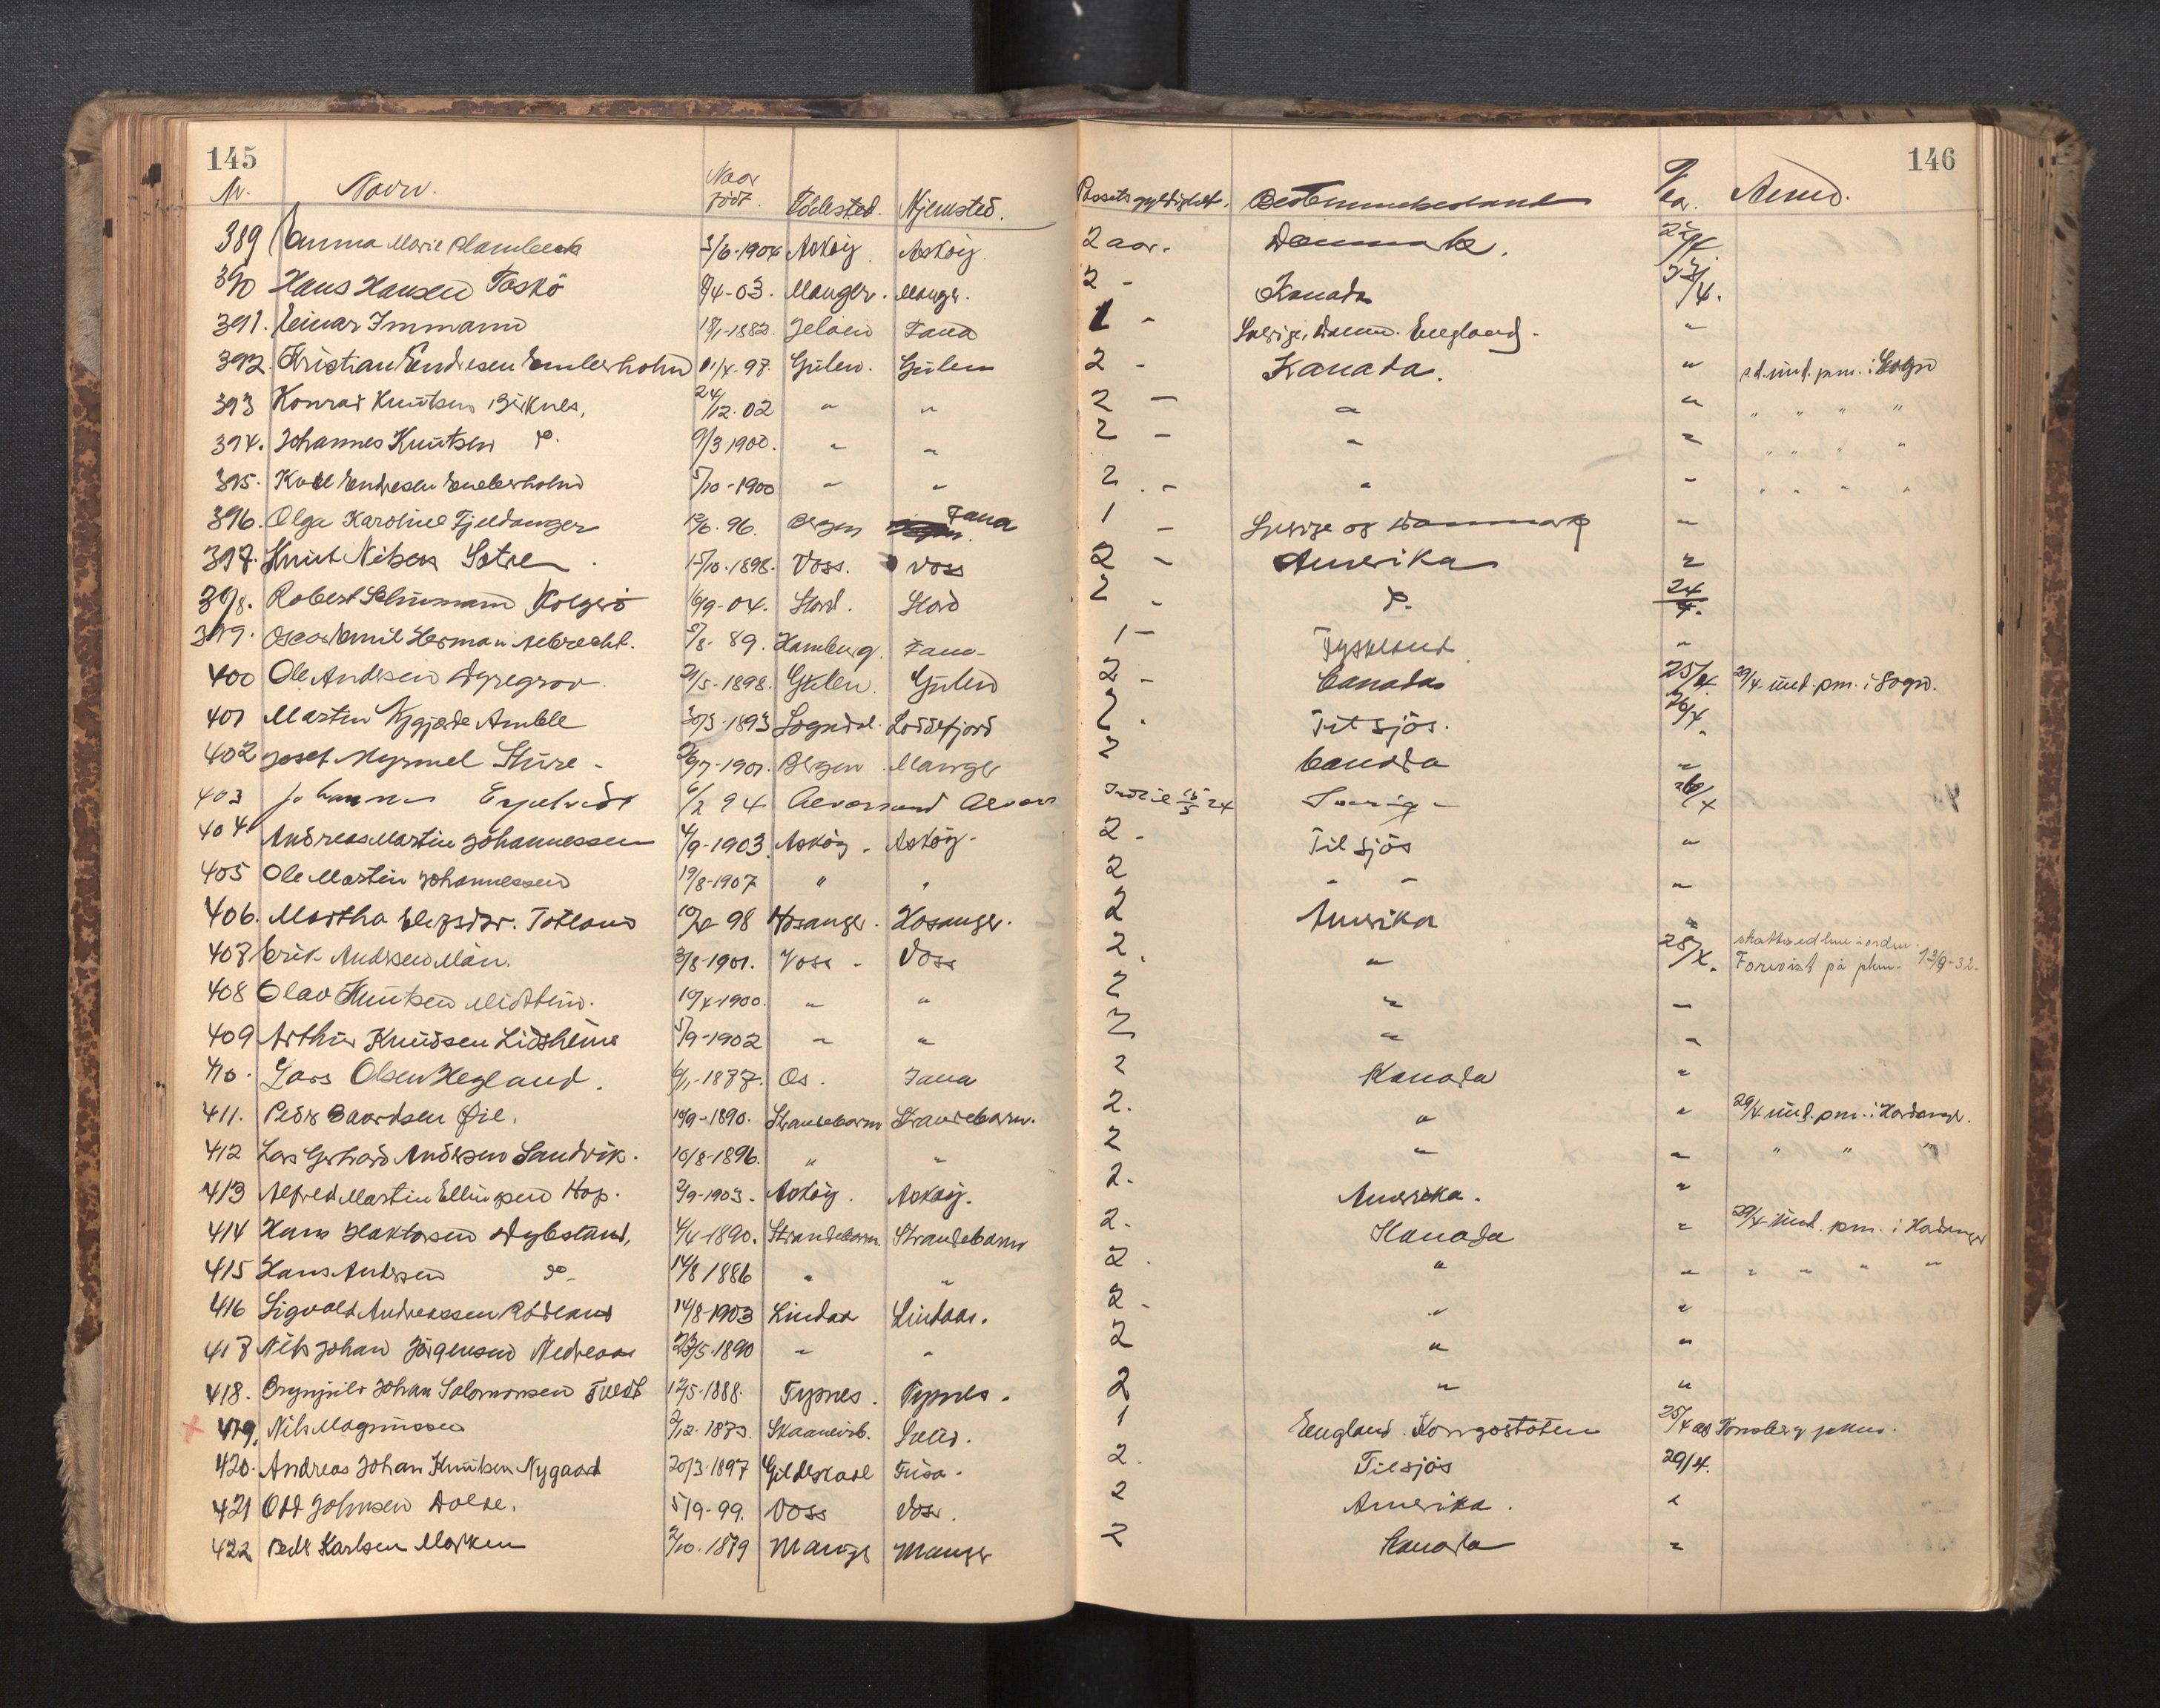 145
146
Nr. Navn. Naar född. Födested. Hjemsted. Passets gyldighet. Bestemmelsesland Anm.
389 Anna Marie Plambeck 3/6-1904 Asköy. Asköy. 2 aar. Danmark. 22/4.
390 Hans Hansen Toskö /4-03. Manger. Mangr. 2 - Kanada 23/4.
391. Einar Immann 18/1-1882. Jelöen Fana 1 - Sverige, Danm. England. "
392. Kristian Endresen Emberholm 01/4-97. Gulen. Gulen 2 - Kanada. " s.d. und. pm. i Sogn
393 Konrad Knutsen Birknes, 24/12-02 " " 2 - " " " " " "
394. Johannes Knutsen Do. 9/3 1900. " " 2 - " " " " " "
395. Endresen Emberholm 5/10-1900 " " 2 - " " " " " "
396. Olga Karoline Fjeldanger /6-96. Bergen Fana 1 - Sverige og Danmark "
397. Knut Nilsen Sætre 15/10-1898. Voss. Voss 2 - Amerika "
398. Robert Schumann Kolgrö 16/9-04. Stord. Stord 2 - Do. 24/4.
399. Oscar Emil Herman Albrecht. 5/8-89. Hamburg. Fana 1 - Tyskland "
400 Ole Andersen Dyregrov. 21/5-1898. Gulen. Gulen 2 - Canada 25/4. 29/4 und. pm. i Sogn.
401 Martin Amble 30/3-1893 Sogndal. Loddefjord 2. Til sjös. 26/4.
402 Josef Myrmel Sture - 1901. Bergen Manger 2 Canada "
403 Johannes Espelidt 6/2 94 Alversund Alvers Indtil 15/5 24 Sverige 26/4
404 Andreas Martin Johannessen 4/9-1903. Asköy. Asköy. 2 - Til sjös "
405 Ole Martin Johannessen 19/8-1907 " " 2 " " "
406. Martha Totland 98 Hosanger. Hosanger. 2 Amerika "
407 Erik Andersen Møn. 3/8-1901. Voss - Voss 2. " 28/4. skatteseddlene i orden. Forevist på pkm. 13/9-32.
408 Olav Knutsen Midttun. 10/4-1900. " " 2 " "
409 Arthur Knudsen Lidsheim 5/9-1902 " " 2 " "
410. Lars Olsen Hegland. 6/11-1877. Os. Fana 2 Kanada "
411. Peder Baardsen Øie. 18/9-1890. Strandebarm Strandebarm. 2. " " 29/4 und. pm. i Hardanger.
412 Lars Gerhard Andersen Sandvik. 10/8-1896. " " 2 " " " " "
413 Alfred Martin Ellingsen Hop. 2/9-1903. Asköy. Asköy. 2. Amerika. "
414 Hans Haktorsen Dybsland, 4/4-1890. Strandebarm. Strandebarm 2. Kanada " 29/4 und. pm. i Hadanger
415 Hans Andersen Do. 14/8 1886 " " 2. " " " " " "
416 Sigvald Andreassen Rödland 14/8-1903 Lindaas Lindaas. 2 - " "
417 Nils Johan Jörgensen Nedreaas 23/5-1890 " " 2 " "
418. Brynjulv Johan Salomonsen Tvedt 12/5-1888. Tysnes. Tysnes. 2 " "
419. Nils Magnussen 2/12-1873. Skaanevik. 1 England. Kongostaten 25/4 av Tönsberg pkm.
420. Andreas Johan Knutsen Nygaard 20/3-1897 Gildeskaal Fusa. 2. Til sjös 29/4.
421 Odd Johnsen Dolve. 5/9-99. Voss Voss. 2 Amerika. "
422 Peder Karlsen Marken 2/10-1879 Manger Manger 2 Kanada "